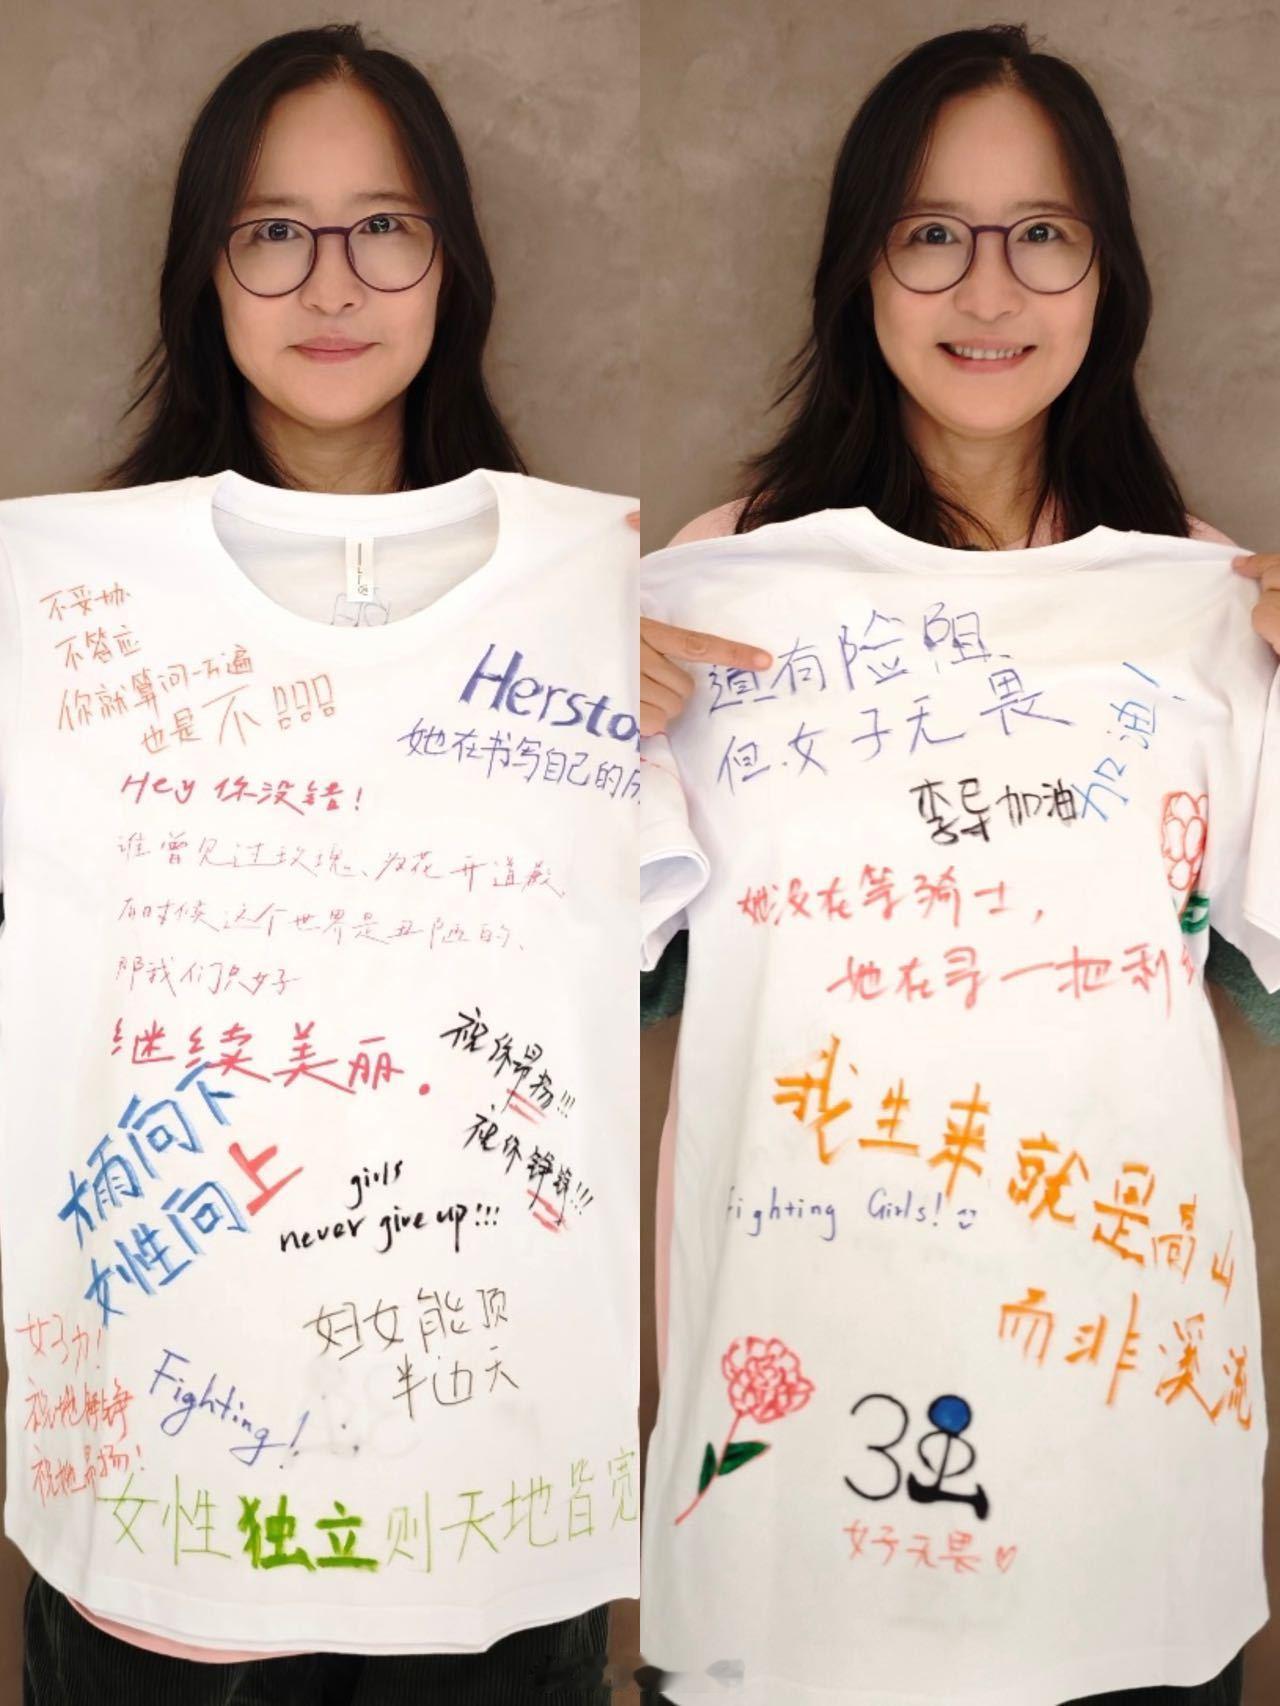 不妥协
不答应
你就算问一万遍
也是不!!!!
Herstory
她在书写自己的
Hey 你没错!
谁曾见过玫瑰、为花开道歉、
有时候这个世界是丑陋的、
那我们只好
继续美丽.
祝你昂扬!!!
祝你铮铮!!!
楠向下
女性向上
girls
never give up!!!
妇女能顶
半边天
女子力!
祝她铮铮
祝她昂扬!
Fighting!
女性独立则天地皆宽
道有险阻
但女子无畏
加油!
李导加油
她没在等骑士,
她在寻一把利
我生来就是高山
而非溪流
Fighting Girls!
3
女子无畏